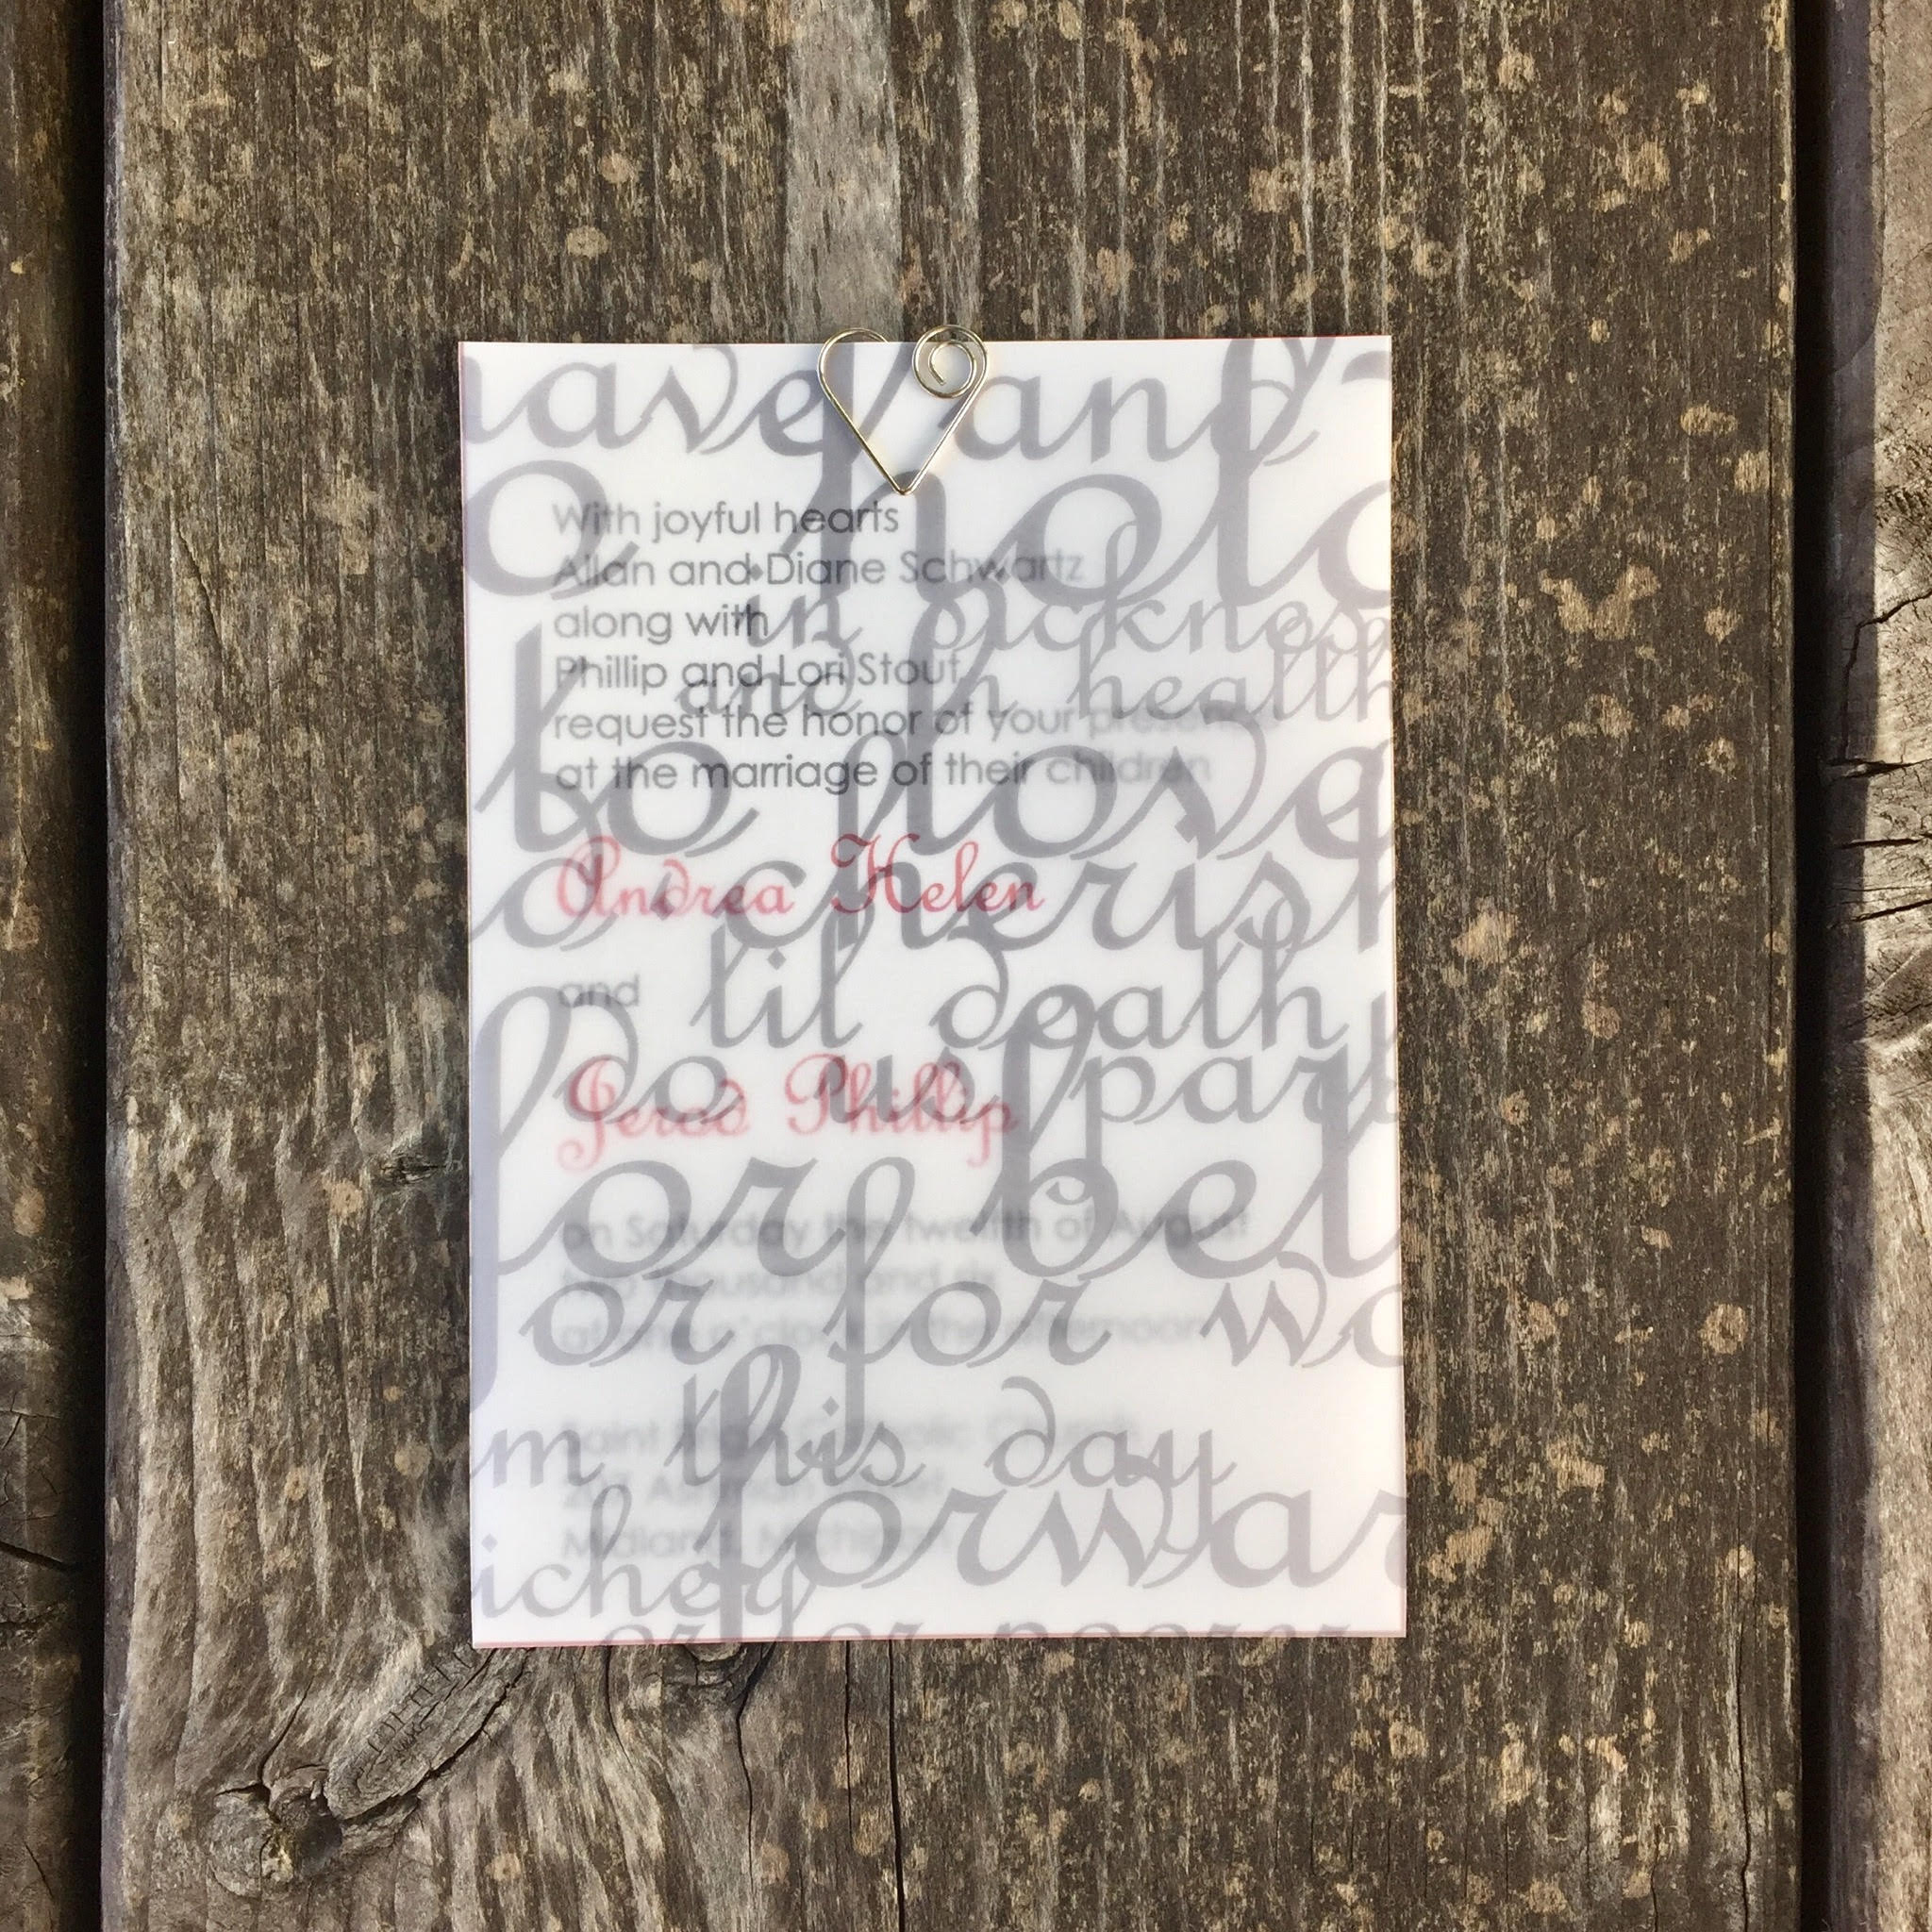 have and
to hold
With joyful hearts
Allan and Diane Schwartz
along with
in sickness
Phillip and Lori Stout
and in health
request the honor of your presence
at the marriage of their children
to love
to cherish
Andrea Helen
and
til death
do us part
Jerod Phillip
for bet
on Saturday the twelfth of August
two thousand and six
or for wo
in the afternoon
m this day
Saint
forwar
Midland, Michigan
icher
or poorer